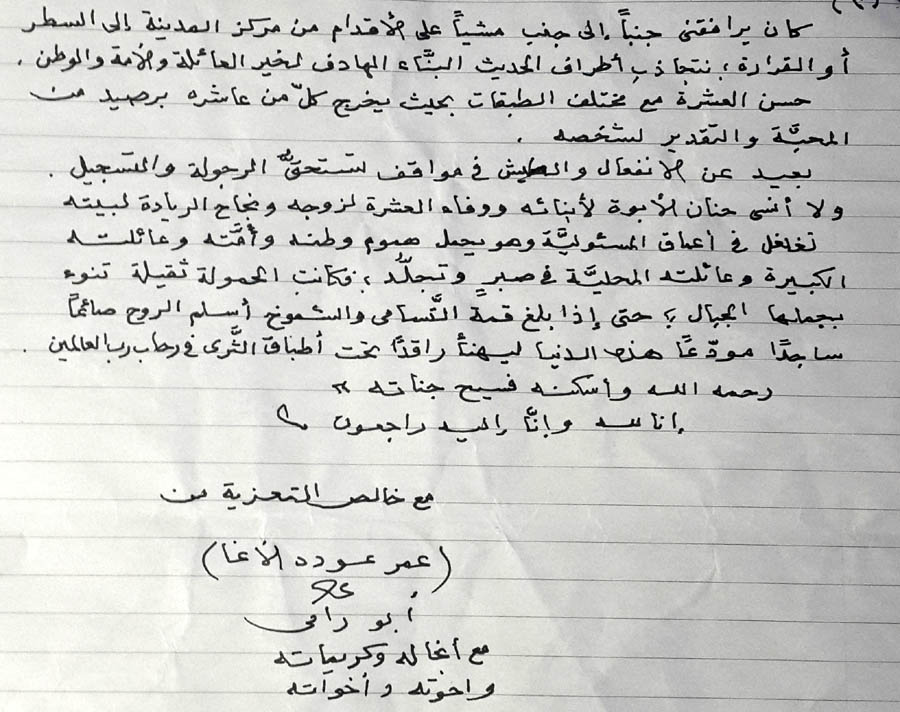 (٢)
كان يرافقني جنباً إلى جنب مشياً على الأقدام من مركز المدينة إلى السطر
أو القرارة ، نتجاذب أطراف الحديث البنَّاء الهادف لخير العائلة والأمة والوطن .
حسن العشرة مع مختلف الطبقات بحيث يخرج كلّ من عاشره برصيد من
المحبَّة والتقدير لشخصه .
بعيد عن الانفعال والطيش في مواقف تستحقّ الرجولة والتسجيل .
ولا أنسى حنان الأبوة لأبنائه ووفاء العشرة لزوجه ونجاح الريادة لبيته
تغلغل في أعماق المسئوليَّة وهو يحمل هموم وطنه وأمَّته وعائلته
الكبيرة وعائلته المحليَّة في صبرٍ وتجلُّد ، فكانت الحمولة ثقيلة تنوء
بحملها الجبال ؛ حتى إذا بلغ قمة التَّسامي والشموخ أسلم الروح صائماً
ساجدًا مودّعًا هذه الدنيا ليهنأ راقدًا تحت أطباق الثَّرى في رحاب رب العالمين .
رحمه الله وأسكنه فسيح جناته "
إنا لله وإنَّا إليه راجعون
مع خالص التعزية من
(عمر عوده الأغا)
أبو رامي
مع أنجاله وكريماته
واخوته وأخواته